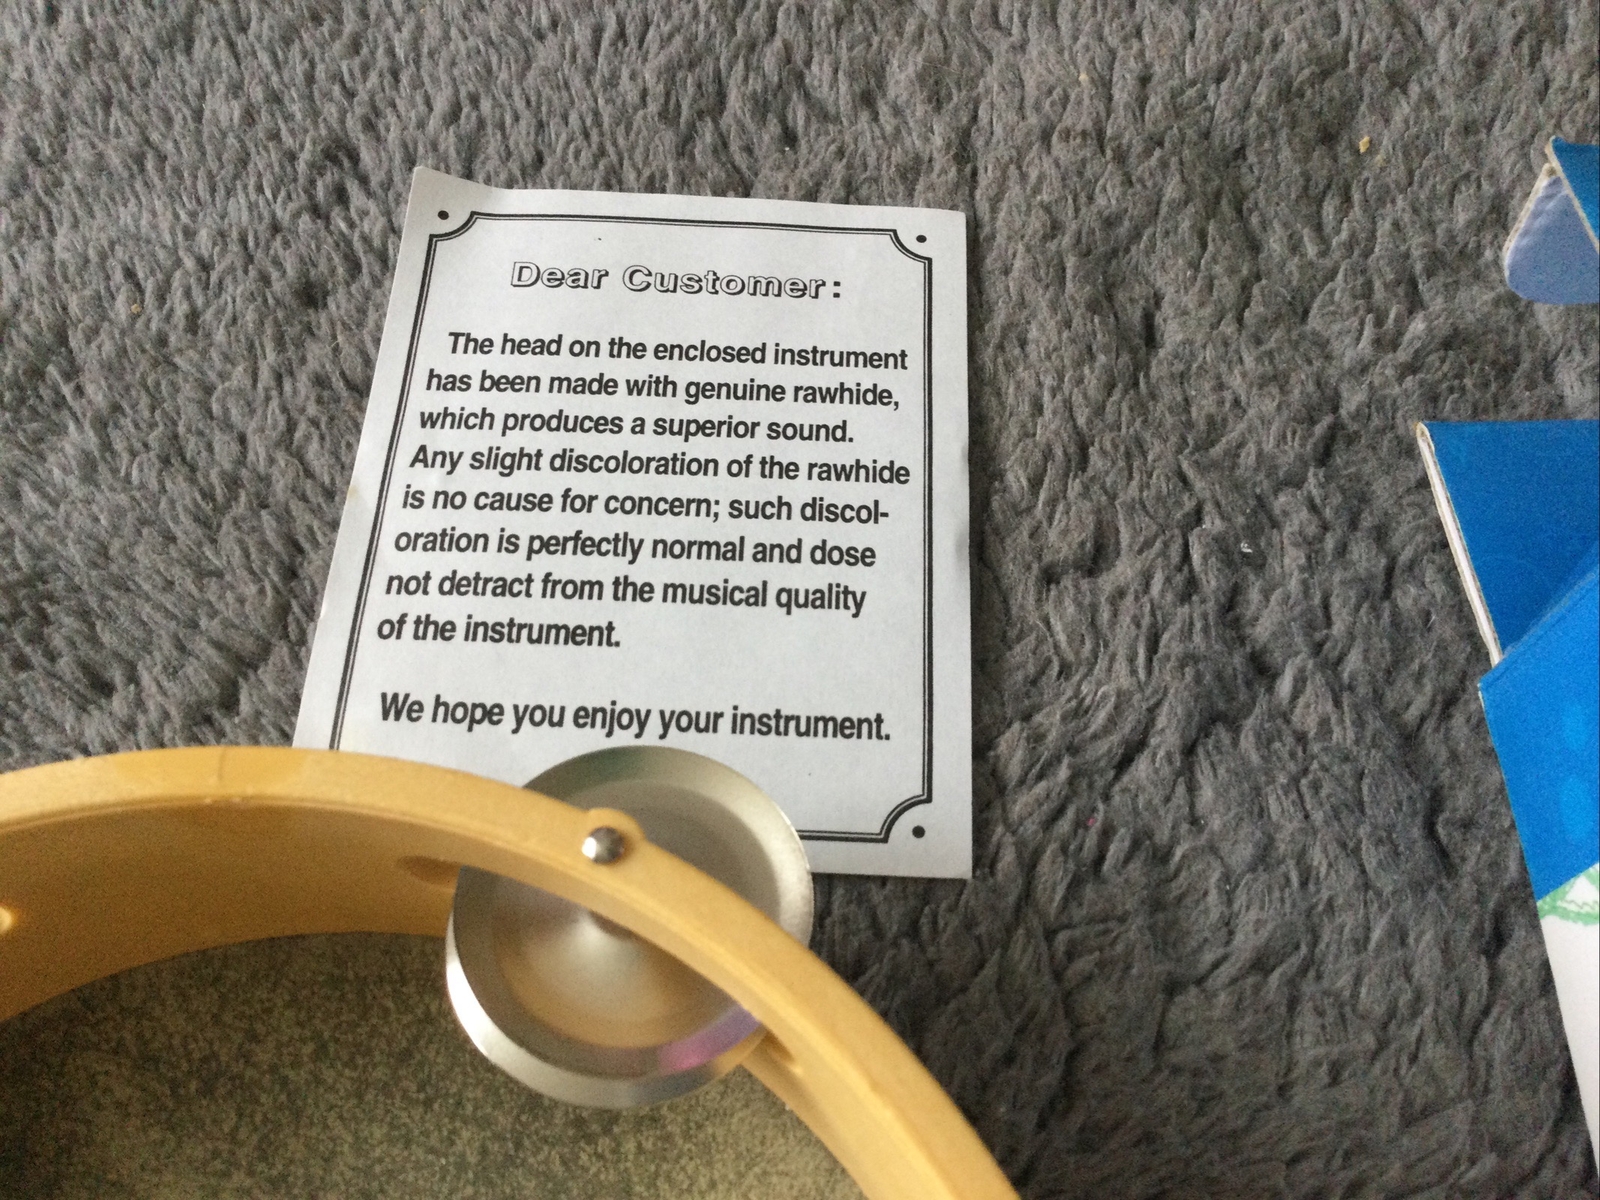 Dear Customer:
The head on the enclosed instrument
has been made with genuine rawhide,
which produces a superior sound.
Any slight discoloration of the rawhide
is no cause for concern; such discol-
oration is perfectly normal and dose
not detract from the musical quality
of the instrument.
We hope you enjoy your instrument.